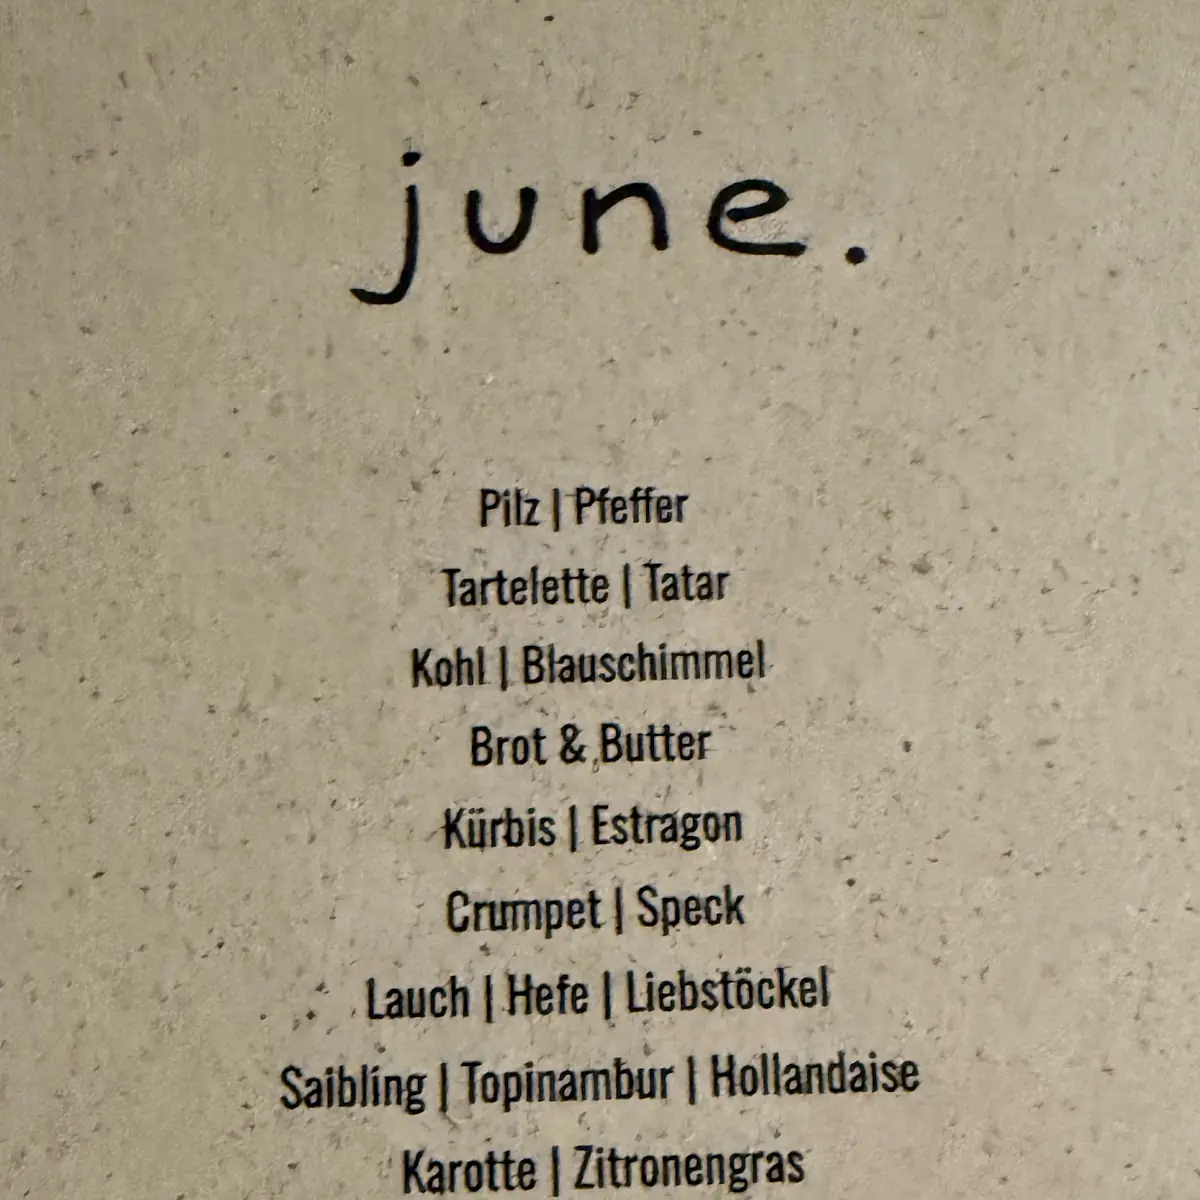 june.
Pilz | Pfeffer
Tartelette | Tatar
Kohl | Blauschimmel
Brot & Butter
Kürbis | Estragon
Crumpet | Speck
Lauch | Hefe | Liebstöckel
Saibling | Topinambur | Hollandaise
Karotte | Zitronengras